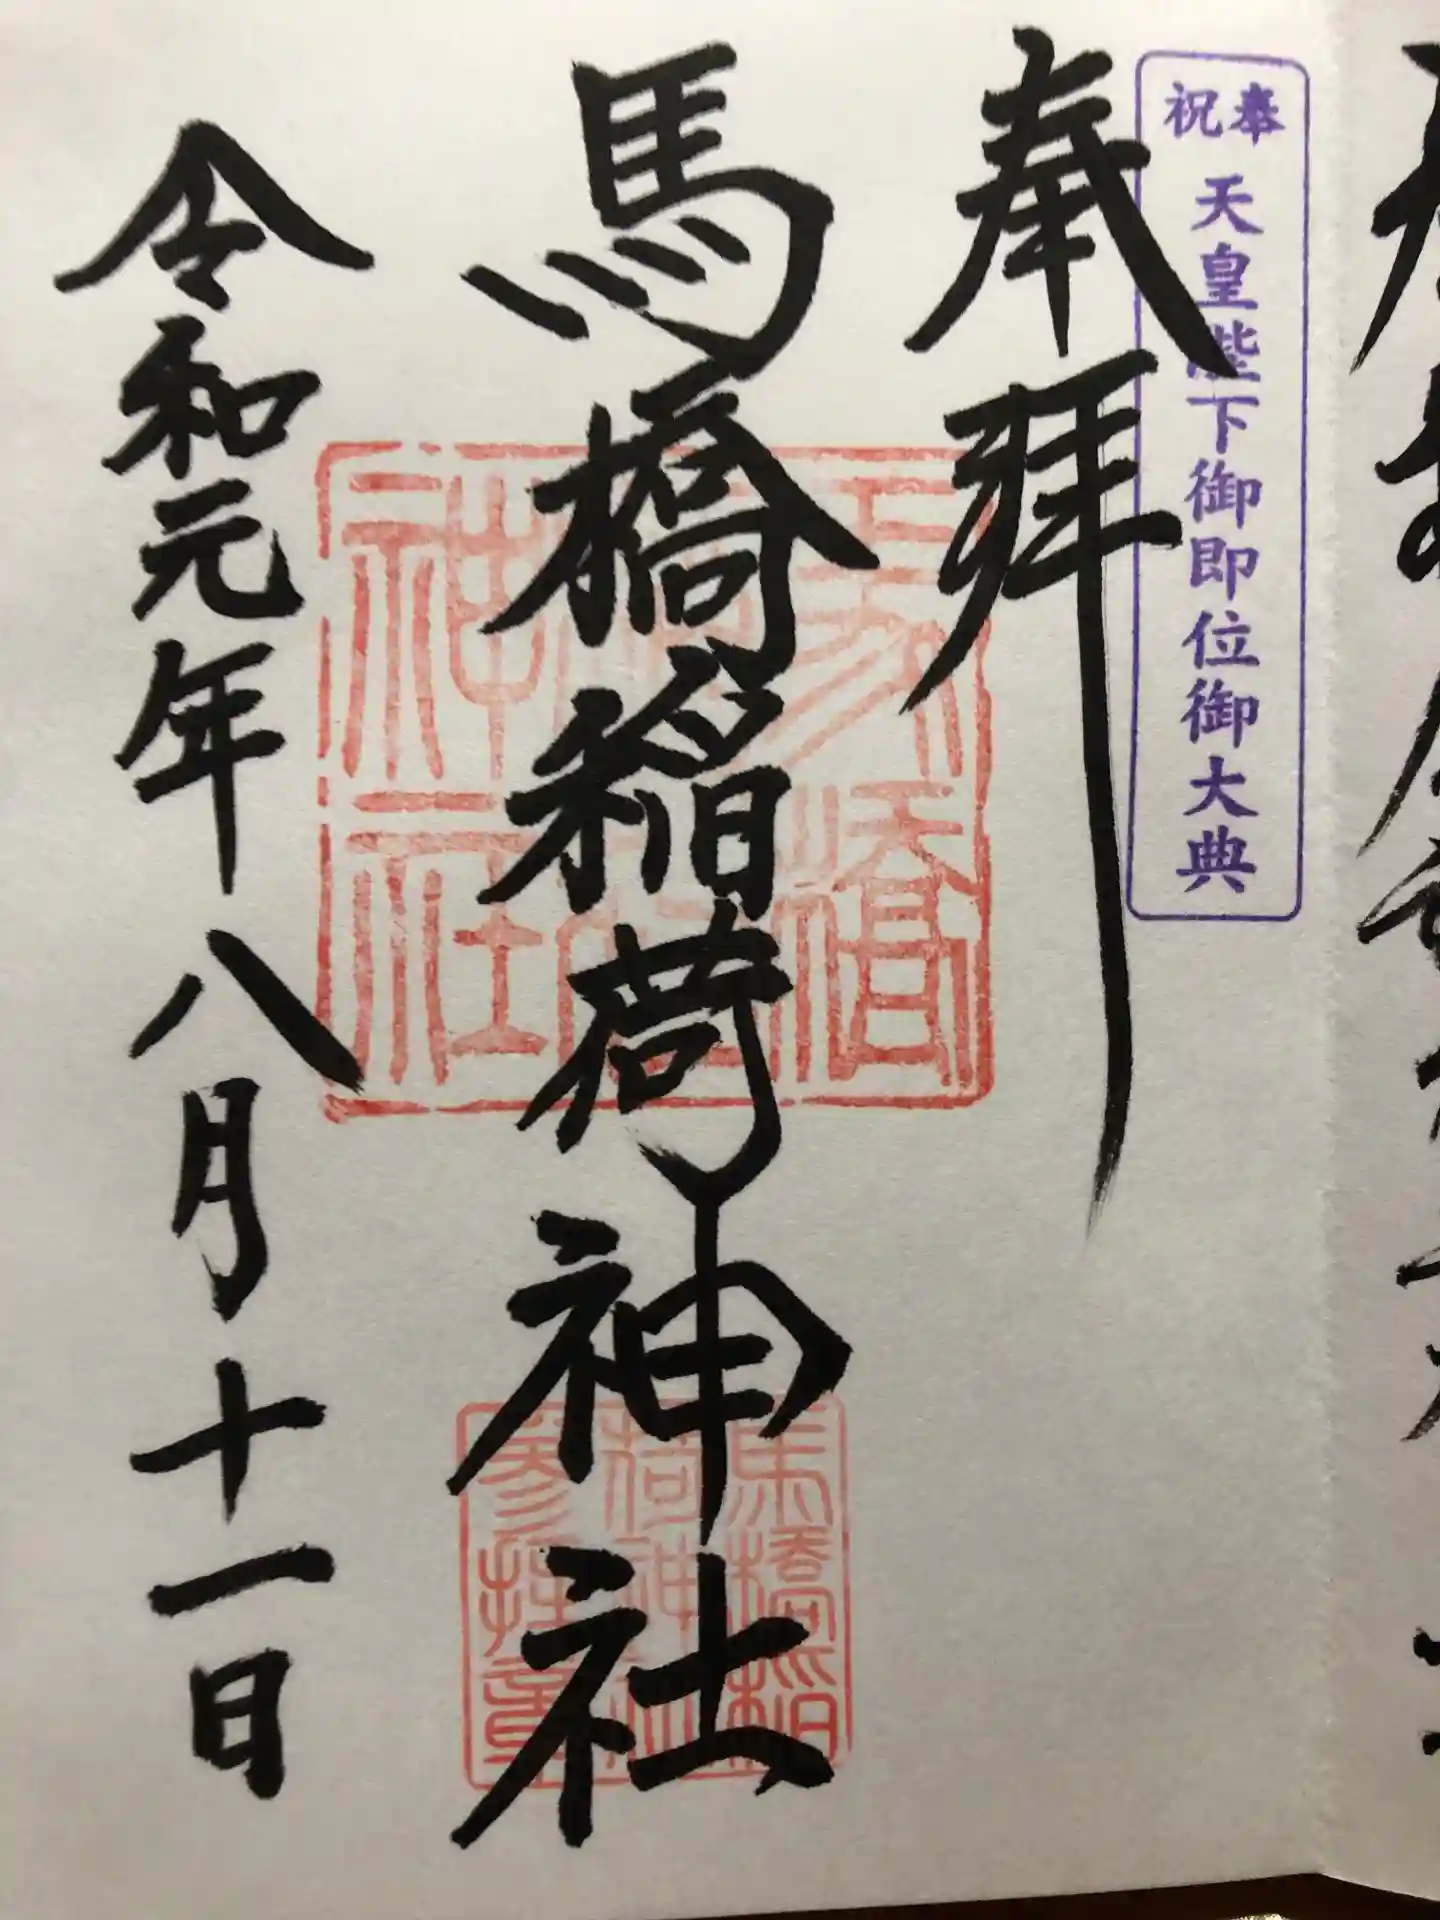 奉祝
天皇陛下御即位御大典
奉拝
馬橋稲荷神社
令和元年八月十一日
馬橋稲荷神社
馬橋稲荷神社参拝章